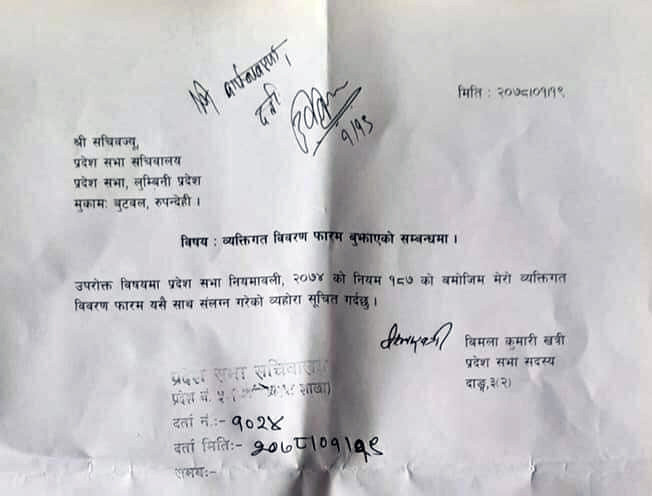 मिति : २०७८।०१।१९
दर्ता
१/१९
श्री सचिवज्यू,
प्रदेश सभा सचिवालय
प्रदेश सभा, लुम्बिनी प्रदेश
मुकामः बुटवल, रुपन्देही ।
विषय : व्यक्तिगत विवरण फारम बुझाएको सम्बन्धमा ।
उपरोक्त विषयमा प्रदेश सभा नियमावली, २०७४ को नियम १८७ को बमोजिम मेरो व्यक्तिगत
विवरण फारम यसै साथ संलग्न गरेको व्यहोरा सूचित गर्दछु ।
बिमला कुमारी खत्री
प्रदेश सभा सदस्य
दाङ्ग,३(२)
प्रदेश सभा सचिवालय
प्रदेश नं. ५ शाखा)
दर्ता नं.:- १०२४
दर्ता मितिः- २०७८/०१/१९
समयः-